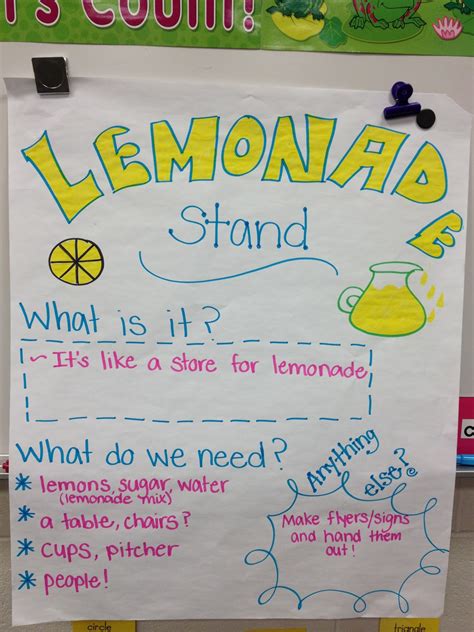 's Count!
LEMONADE
Stand
What is it?
~ It's like a store for lemonade
What do we need?
* lemons, sugar, water
(lemonade mix)
* a table, chairs?
* cups, pitcher
* people!
Anything
else?
Make flyers/signs
and hand them
out!
C
circle
triangle